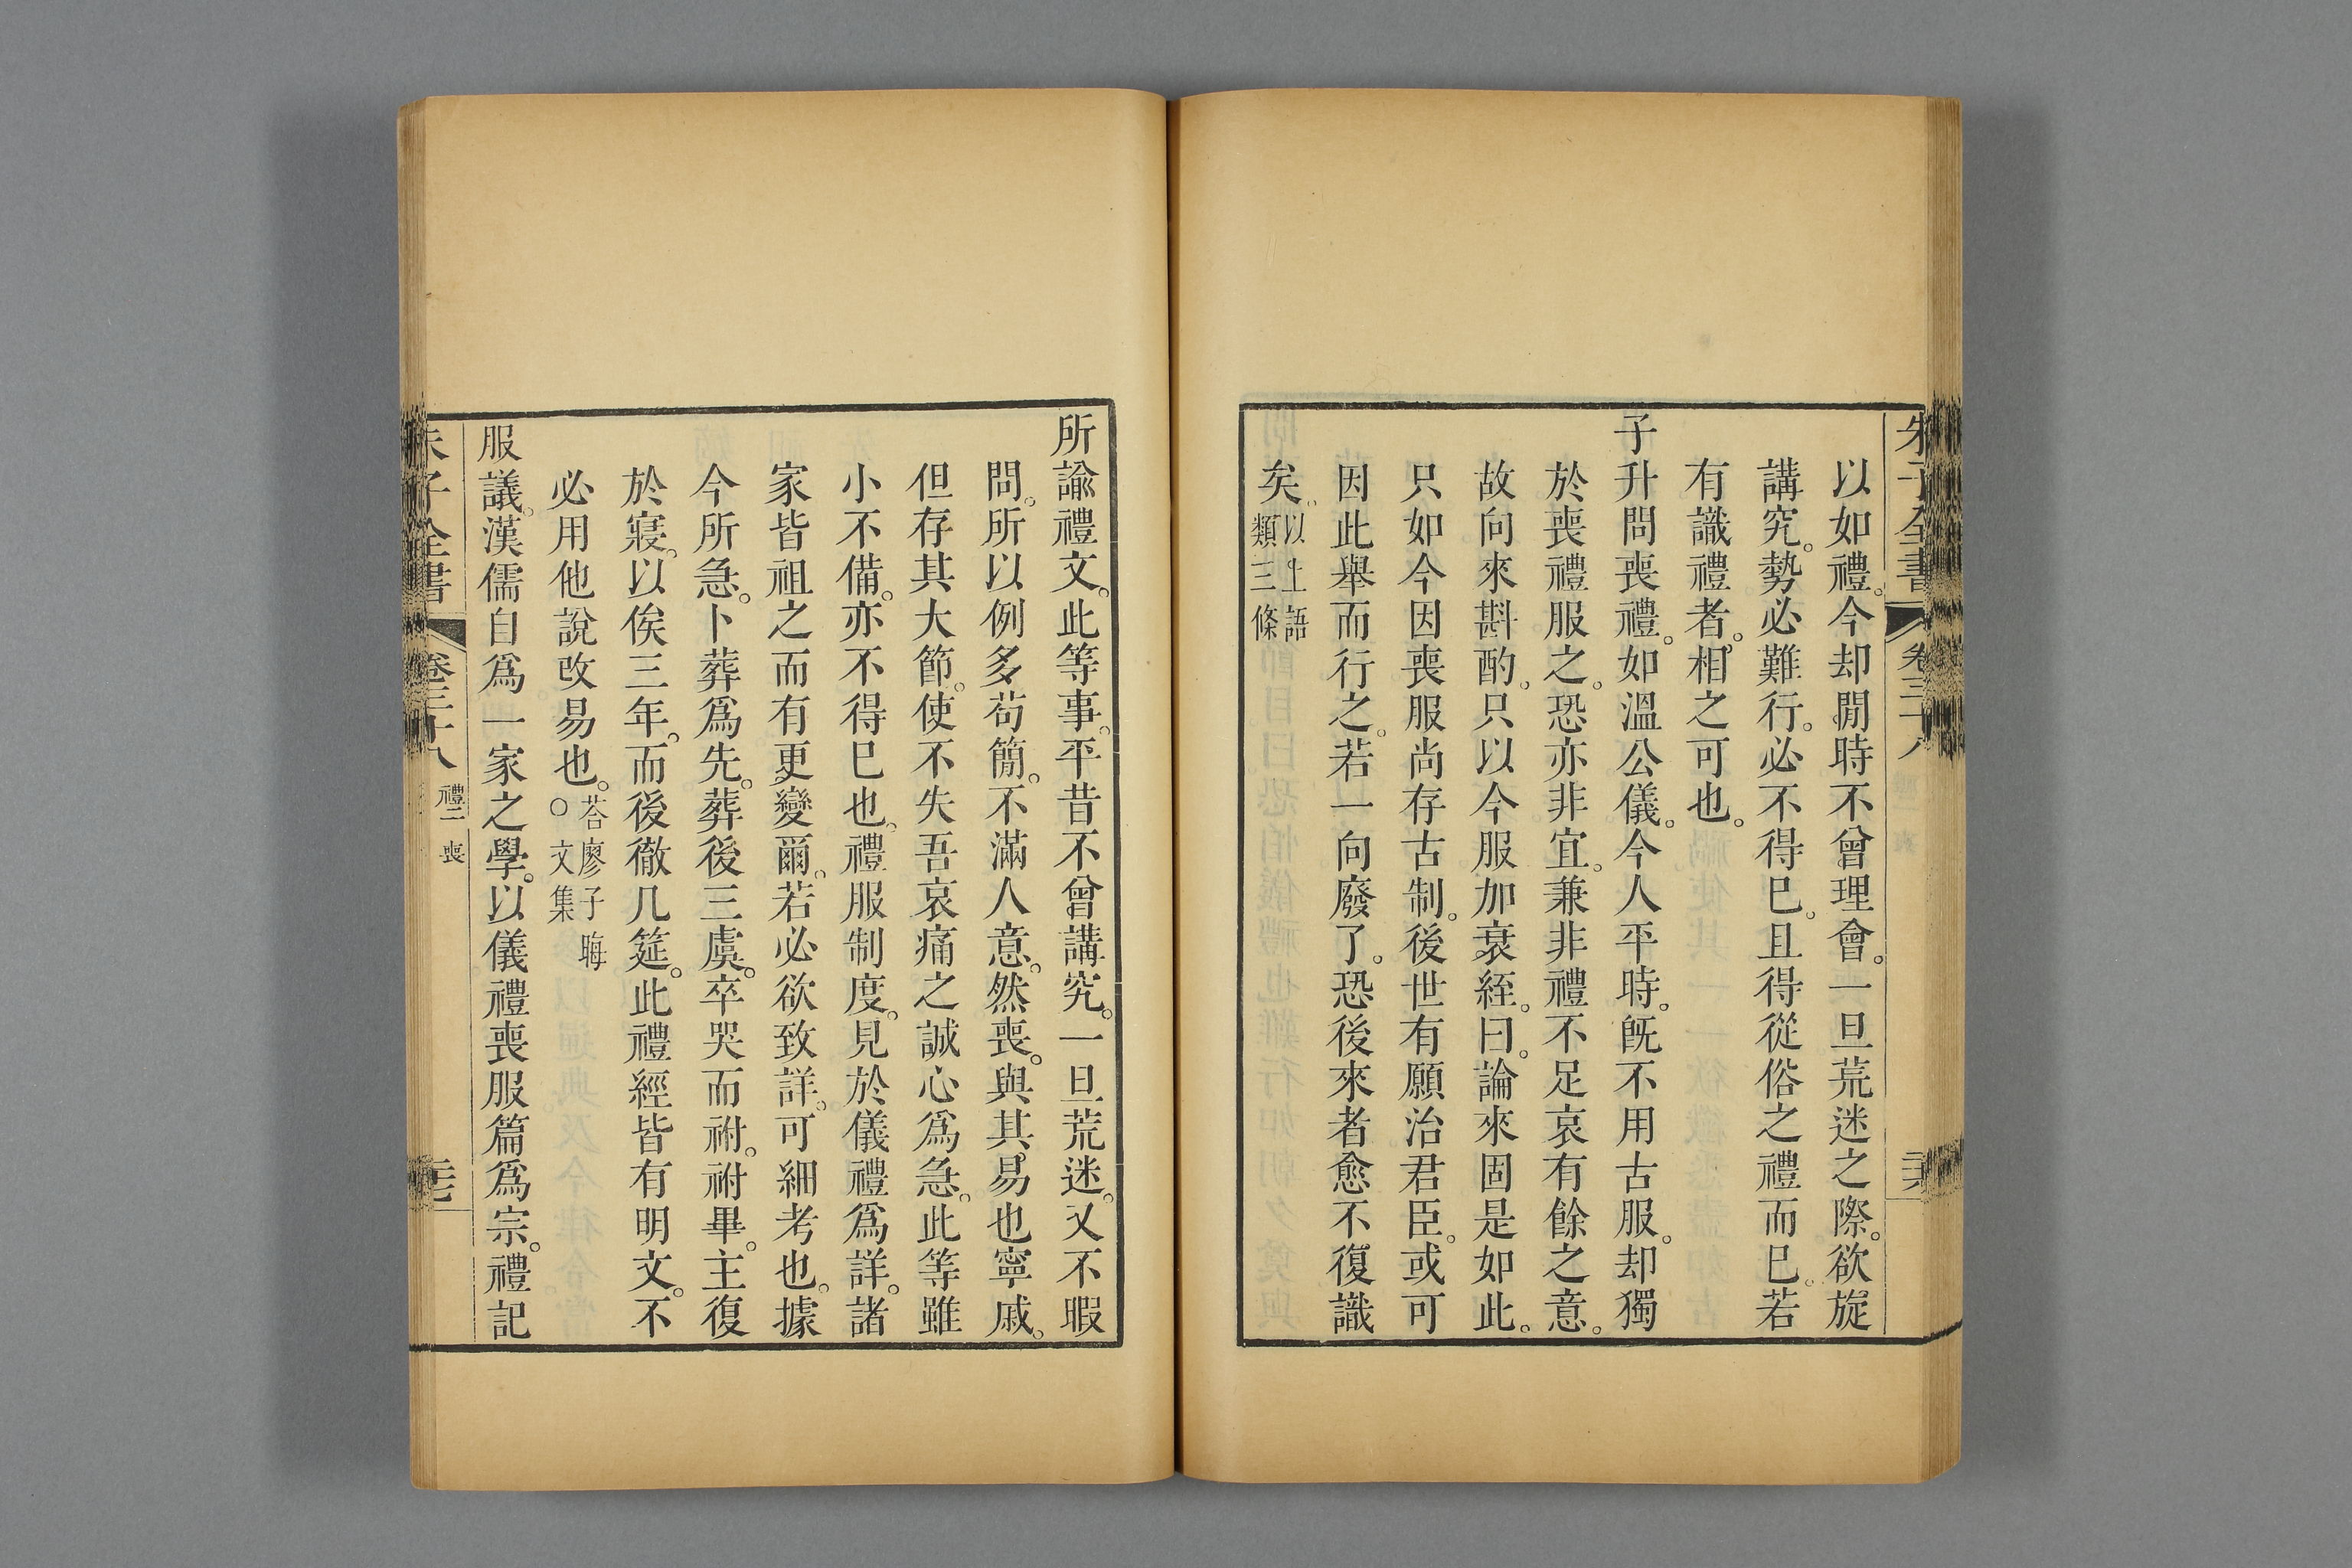 朱子全書 卷三十八
以如禮。今却閒時不曾理會。一旦荒迷之際。欲旋
講究。勢必難行。必不得已。且得從俗之禮而已。若
有識禮者。相之可也。
子升問喪禮。如溫公儀。今人平時。旣不用古服。却獨
於喪禮服之。恐亦非宜。兼非禮不足哀有餘之意。
故向來斟酌。只以今服加衰絰。曰。論來固是如此。
只如今因喪服尚存古制。後世有願治君臣。或可
因此舉而行之。若一向廢了。恐後來者愈不復識
矣。以上語類三條
所諭禮文。此等事。平昔不曾講究。一旦荒迷。又不暇
問。所以例多苟簡。不滿人意。然喪。與其易也寧戚。
但存其大節。使不失吾哀痛之誠心爲急。此等雖
小不備。亦不得已也。禮服制度。見於儀禮爲詳。諸
家皆祖之而有更變爾。若必欲致詳。可細考也。據
今所急。卜葬爲先。葬後三虞。卒哭而祔。祔畢。主復
於寢。以俟三年。而後徹几筵。此禮經皆有明文。不
必用他說改易也。○荅廖子晦文集
服議。漢儒自爲一家之學。以儀禮喪服篇爲宗。禮記
朱子全書 卷三十八 禮二 喪